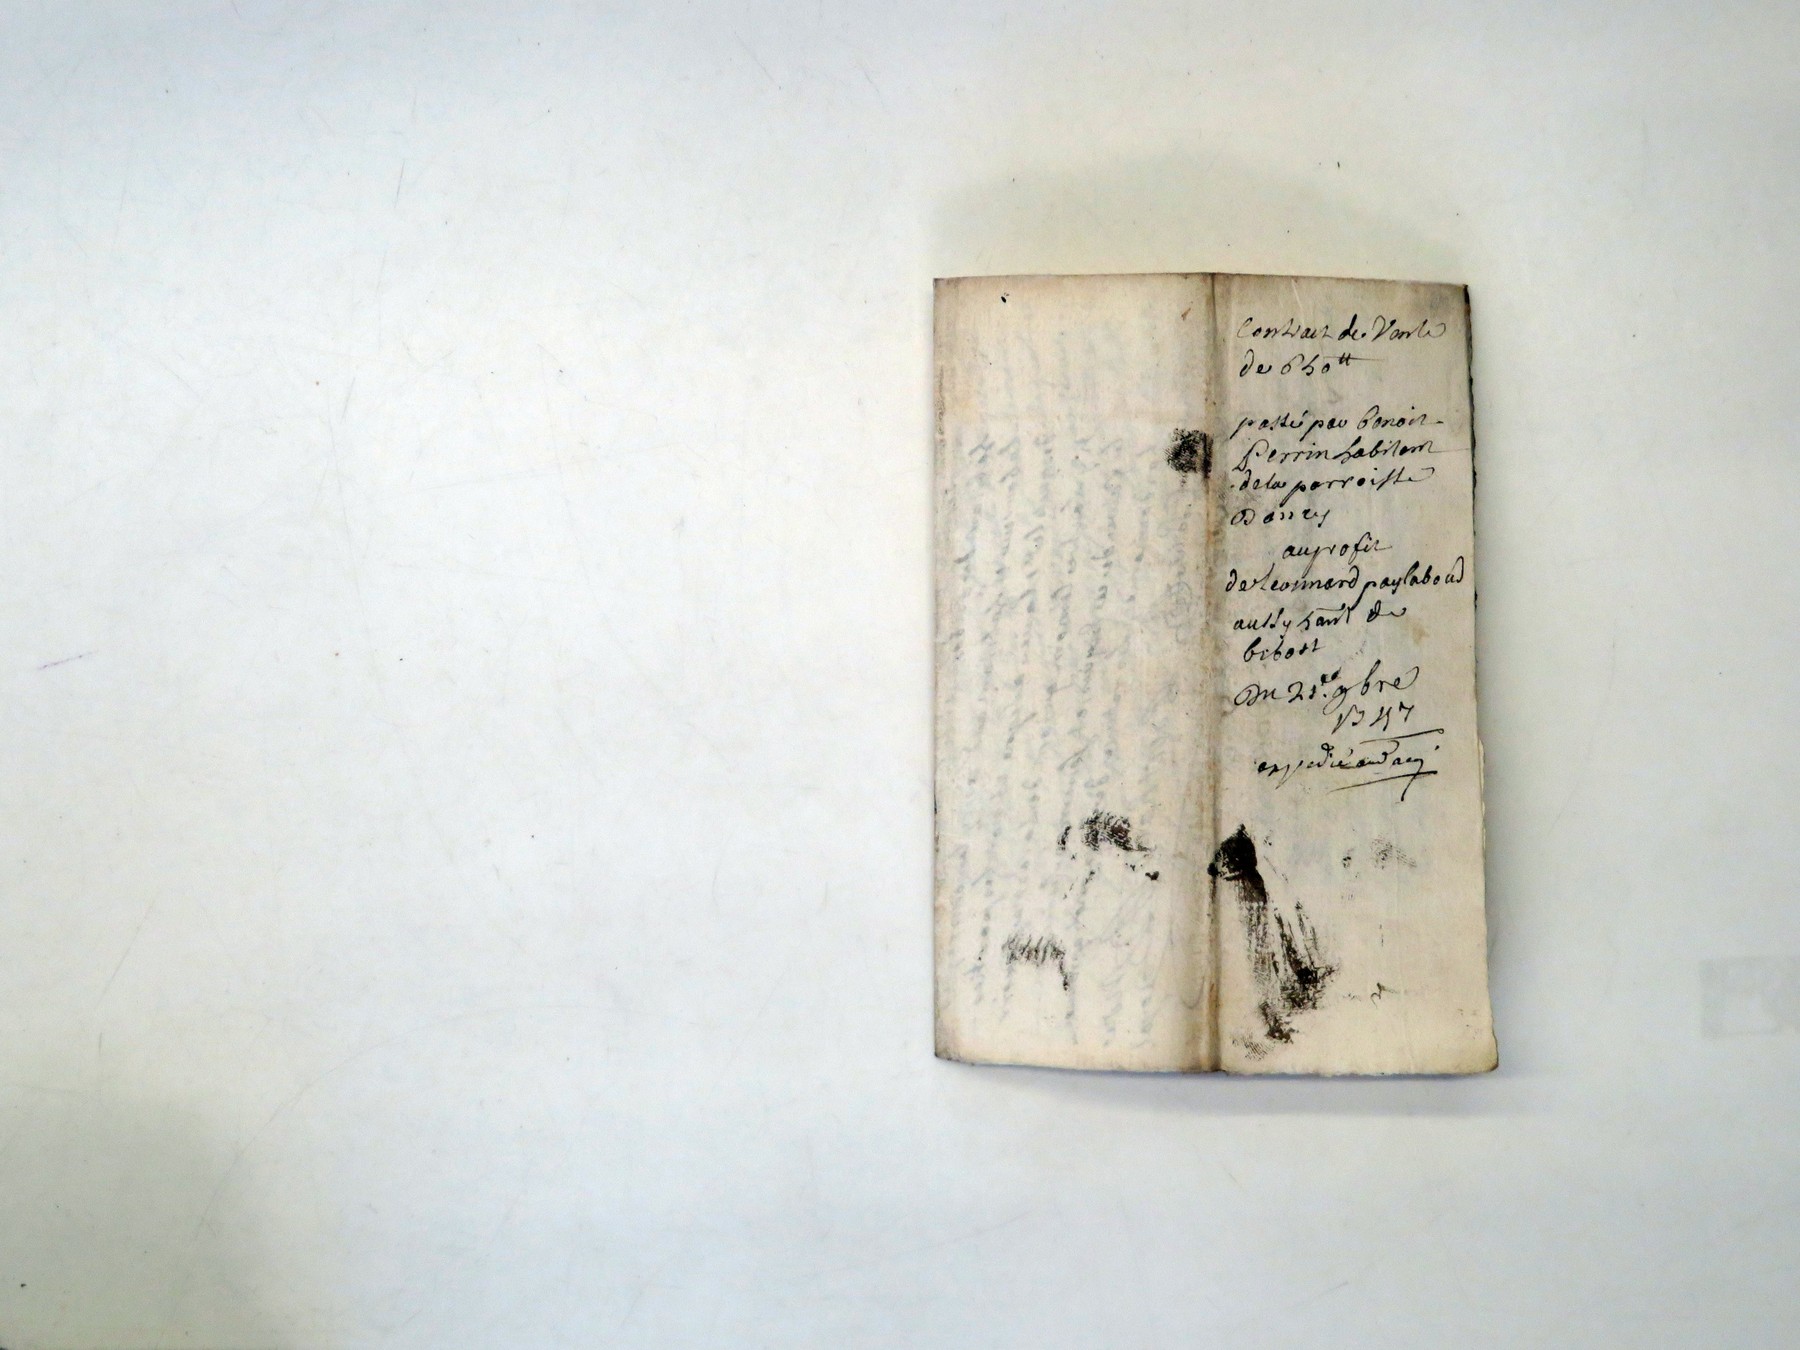 Contract de Vente
de 650ᵗᵗ
passé par benoit
Perrin habitant
de la parroisse
Dancy
au profit
de Leonnard paylaboud
aussy hant de
bibost
Du 21.ᵉ 9bre
1747
expedié aud acq